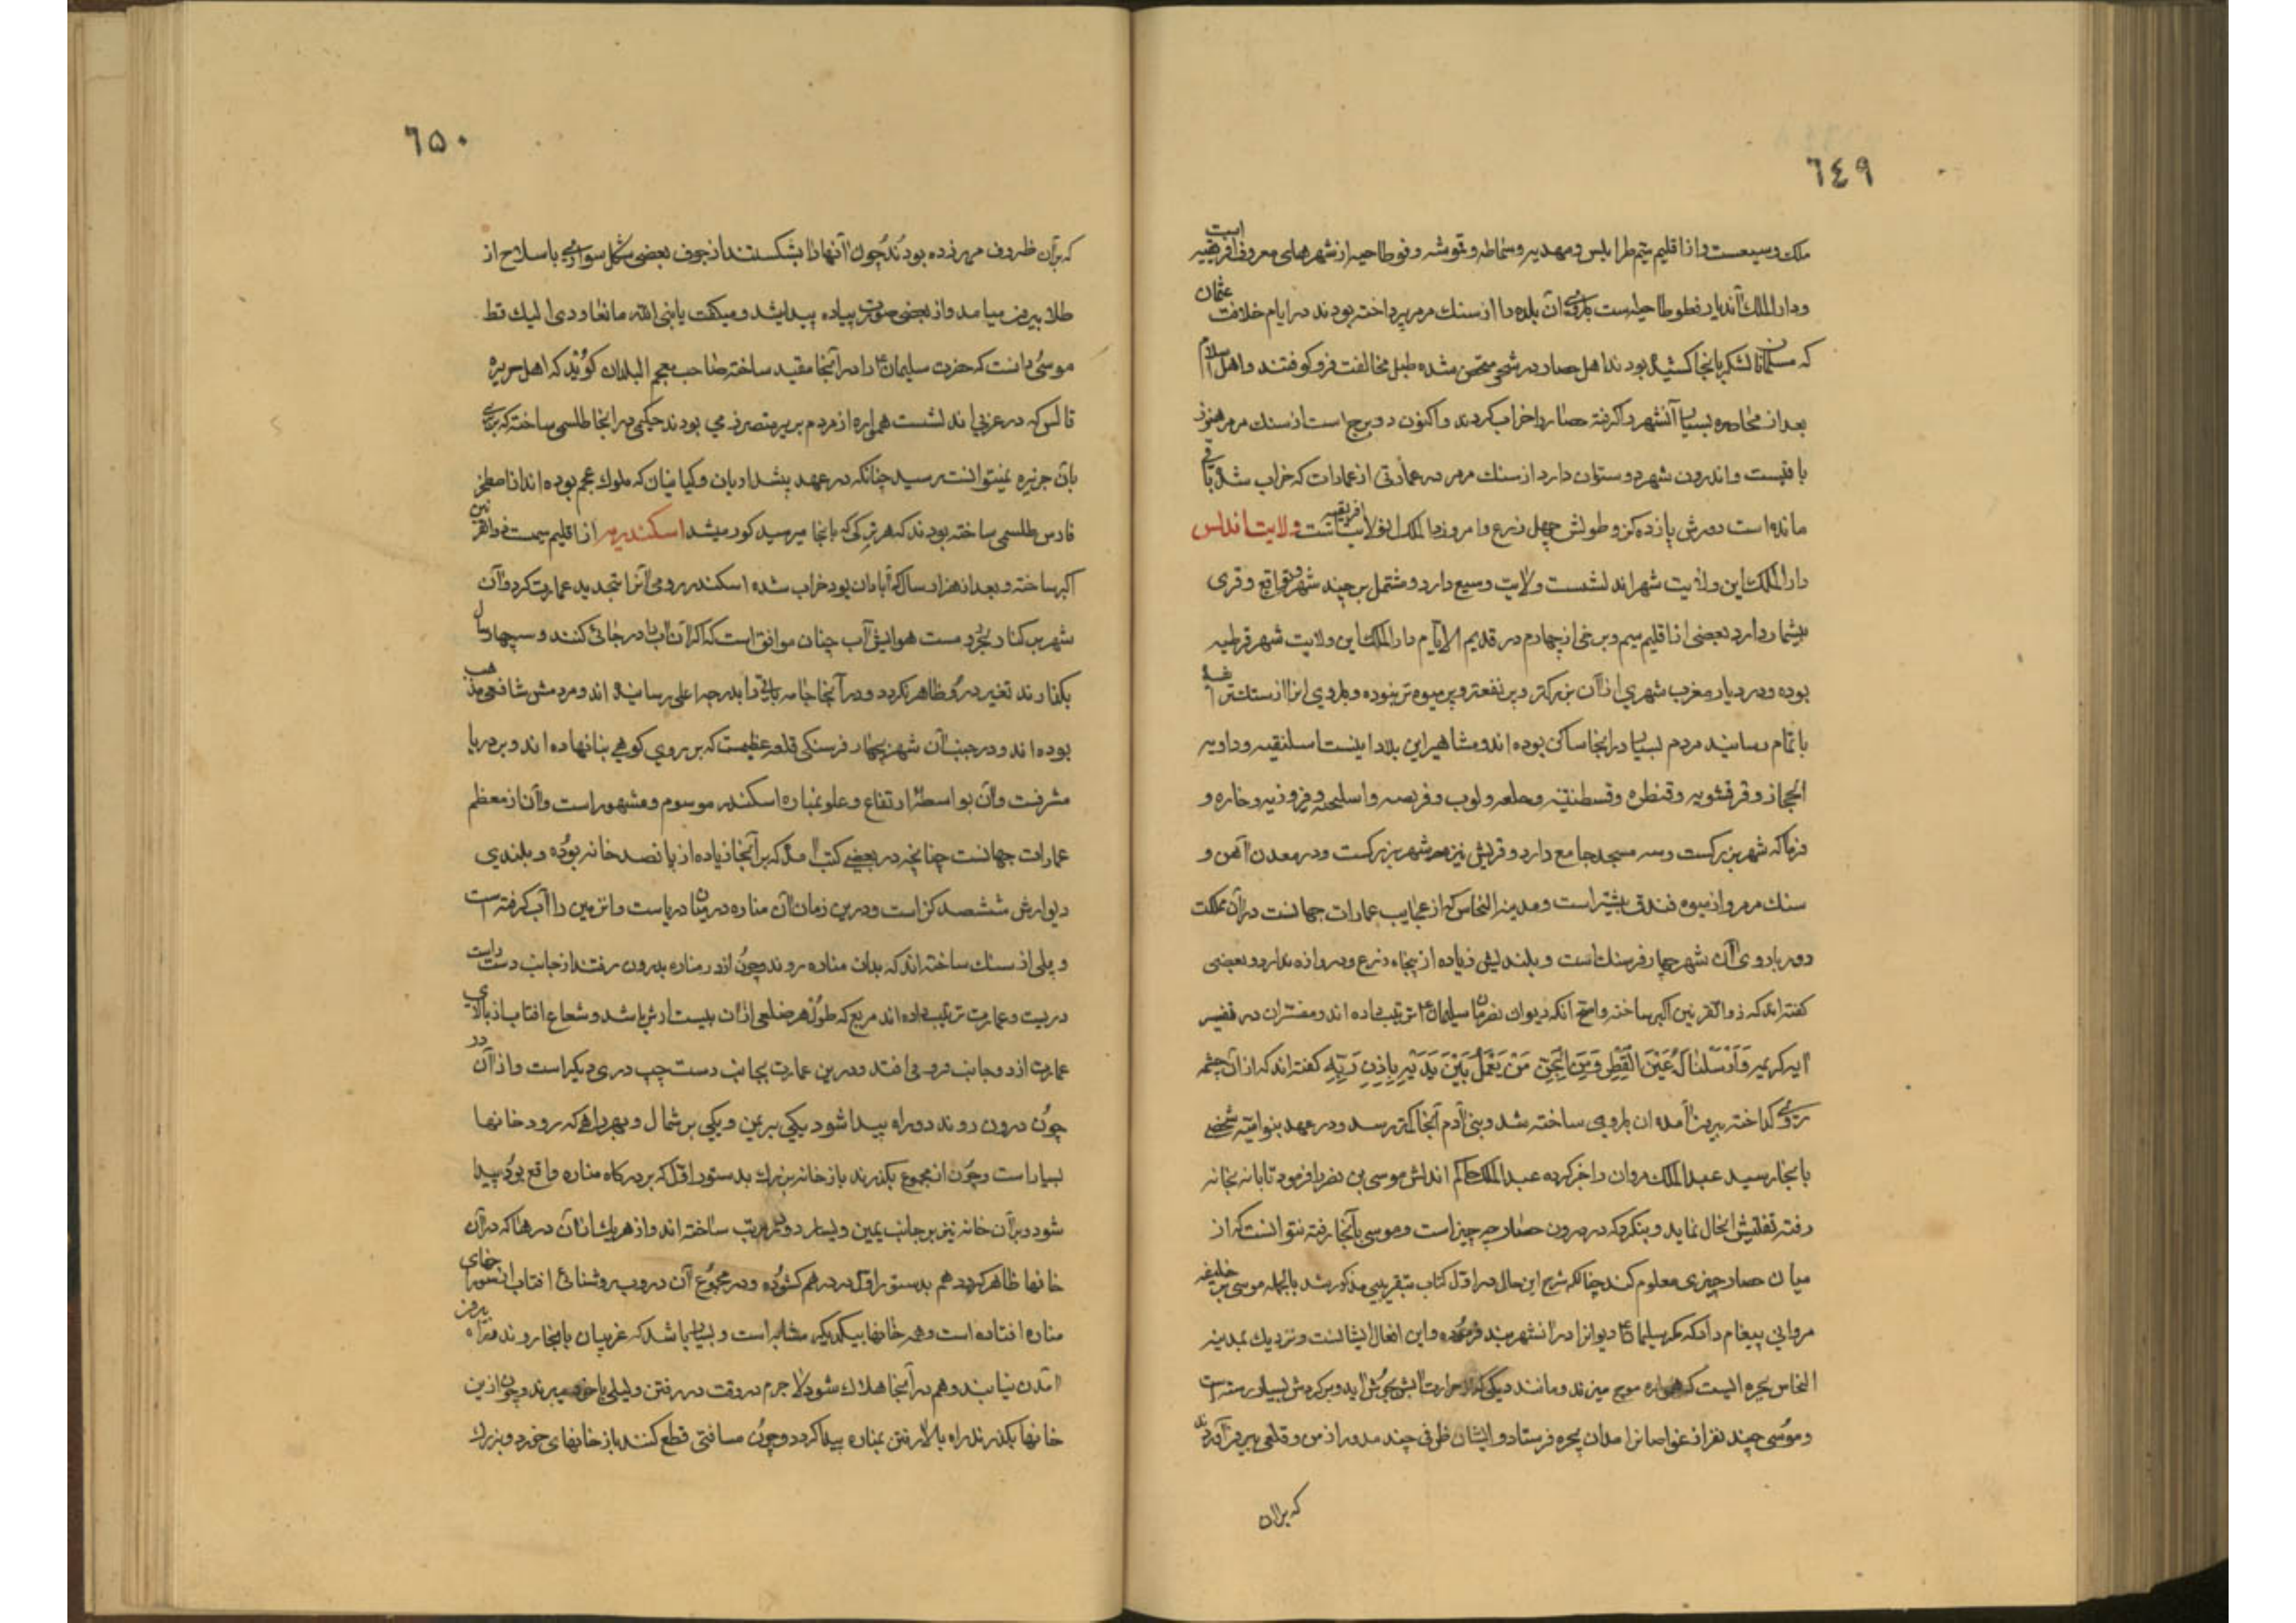 ٦٤٩
ملک وسیعست و از اقلیم سیم طرابلس و مهدیه و و از شهرهای معروف افریقیه است
و دار الملک آندیار است باروی آن بلده را از سنک مرمر پرداخته بودند در ایام خلافت عثمان
که مسلمانان لشکر بانجا کشیده بودند اهل حصار در شهر متحصن شده طبل مخالفت فرو کوفتند و اهل اسلام
بعد از محاصره بسیار آنشهر را کرفته حصار را خراب کردند و اکنون دو برج است از سنک مرمر هنوز
باقیست و اندرون شهر دو ستون دارد از سنک مرمر در عمارتی از عمارات که خراب شده باقی
مانده است دورش پازده کز و طولش چهل ذرع و امروز دار الملک افریقیه است ولایت اندلس
دار الملک این ولایت شهر اندلشست ولایت وسیع دارد و مشتمل بر چند شهر و مواقع و قری
بیشمار دارد بعضی از اقلیم سیم و برخی از چهارم در قدیم الایام دار الملک این ولایت شهر قرطبه
بوده و در دیار مغرب شهری از آن بزرکتر و پر نفعتر و پر میوه تر نبوده و باروی انرا از سنک
باتمام رسانیده مردم بسیار در انجا ساکن بوده اند و مشاهیر این بلاد اینست
الحجاز و و قنطره و قسطنتیه و و لوب و و و و
فرما که شهر بزرکست و سه مسجد جامع دارد و قریش نیز هم شهر بزرکست و در معدن آهن و
سنک مرمر و از میوه فندق بیشتر است و مدینه النحاس که از عجایب عمارات جهانست در آن مملکت
دور باروی آن شهر چهار فرسنک است و بلندیش زیاده از پنجاه ذرع و دروازه ندارد و بعضی
کفته اند که ذو القرنین اکبر ساخته و اصح آنکه دیوان بفرمان سلیمان ع ترتیب داده اند و مفسران در تفسیر
ایه کریمه وَأَرْسَلْنَا لَهُ عَيْنَ الْقِطْرِ وَمِنَ الْجِنِّ مَنْ يَعْمَلُ بَيْنَ يَدَيْهِ بِإِذْنِ رَبِّهِ کفته اند که از آن چشمه
روی کداخته بیرون آمده ان باروی ساخته شد و بنی آدم آنجا کمتر رسد و در عهد بنو امیه شخصی
بانجا رسید عبد الملک مروان را خبر کرده عبد الملک حاکم اندلس موسی بن نصر را فرمود تا بانجا
رفته تفتیش الحال نماید و بنکرد که در درون حصار چه چیز است و موسی بآنجا رفته نتوانست که از
میان حصار چیزی معلوم کند چنانکه شرح این حال در اول کتاب بتقریبی مذکور شد بالجمله موسی بر خلیفه
مروانی پیغام داد که مکر سلیمان ع دیوانرا در انشهر بند فرموده و این افعال ایشانست و نزدیک بمدینه
النحاس بحیره ایست که همواره موج میزند و مانند دیکی که از حرارت آتش بجوش اید و بر کردش بسیار است
و موسی چند نفر از غواصانرا بدان بحره فرستاد و ایشان ظرفی چند مدور از مس و قلعی بیرون آوردند
که بر آن
٦٥٠
که بر آن ظروف مهر زده بودند چون آنها را بشکستند از جوف بعضی شکل سواری با سلاح از
طلا بیرون میامد و از بعضی صورت پیاده پیدا یشد و میکفت یا نبی الله ما نعاودی الیک قط
موسی دانست که حضرت سلیمان ع را در آنجا مقید ساخته صاحب معجم البلدان کوید که اهل جزیره
قالس که در غربی اندلشست همواره از مردم بربر متصرف می بودند حکیمی در انجا طلسمی ساخته که بربری
بان جزیره نمیتوانست رسید چنانکه در عهد پیشدادیان و کیانیان که ملوک عجم بوده اند از اصطخر
فارس طلسمی ساخته بودند که هر ترکی که بانجا میرسید کور میشد اسکندریه از اقلیم سیمست ذو القرنین
اکبر ساخته و بعد از هزار سال که آبادان بود خراب شده اسکندر رومی آنرا تجدید عمارت کرد و آن
شهر بر کنار بحر است هوایش آب چنان موافق است که اکر آن آب را در جائی کنند و سیچهار سال
بکذارند تغیر در و ظاهر نکردد و در آنجا جامه بافی را بدرجه اعلی رسانیده اند و مردمش شافعی مذهب
بوده اند و در جنب آن شهر بچهار فرسنکی قلعه عظیمست که بر روی کوهی بنا نهاده اند و بر دریا
مشرفست و آن بواسطه ارتفاع و علو بمناره اسکندر موسوم و مشهور است و آن از معظم
عمارات جهانست چنانچه در بعضی کتب آمده که بر آنجا زیاده از پانصد خانه بوده و بلندی
دیوارش ششصد کز است و درین زمان آن مناره در میان دریاست و انزمین را آب کرفته است
و پلی از سنک ساخته اند که بدان مناره روند و چون از در مناره بدرون رفتند از جانب دست راست
دریست و عمارت ترتیب داده اند مربع که طول هر ضلعی از آن بیست ارش باشد و شعاع افتاب از بالای
عمارت از دو جانب فرو می افتد و درین عمارت بجانب دست چپ دری دیکر است و از آن در
چون درون روند دو راه پیدا شود یکی بر یمین و یکی بر شمال و بهر راهی که رود خانها
بسیار است و چون از مجموع بکذرند باز خانه بزرک بدستور اول که بر درکاه مناره واقع بود پیدا
شود و بر آن خانه نیز بر جانب یمین و یسار دو در مرتب ساخته اند و از هر یک از آن درها که در آن
خانها ظاهر کردد هم بدستور اول در در هم کشوده و در مجموع آن دروب روشنائی افتاب از سوراخهای
مناره افتاده است و همه خانها بیکدیکر مشابه است و بسیار باشد که غریبان بانجا روند و راه بیرون
آمدن نیابند و هم در آنجا هلاک شود لا جرم در وقت در رفتن دلیلی با خود میبرند و چون از این
خانها بکذرند راه بالا رفتن بمناره پیدا کردد و چون مسافتی قطع کنند باز خانهای خورد و بزرک